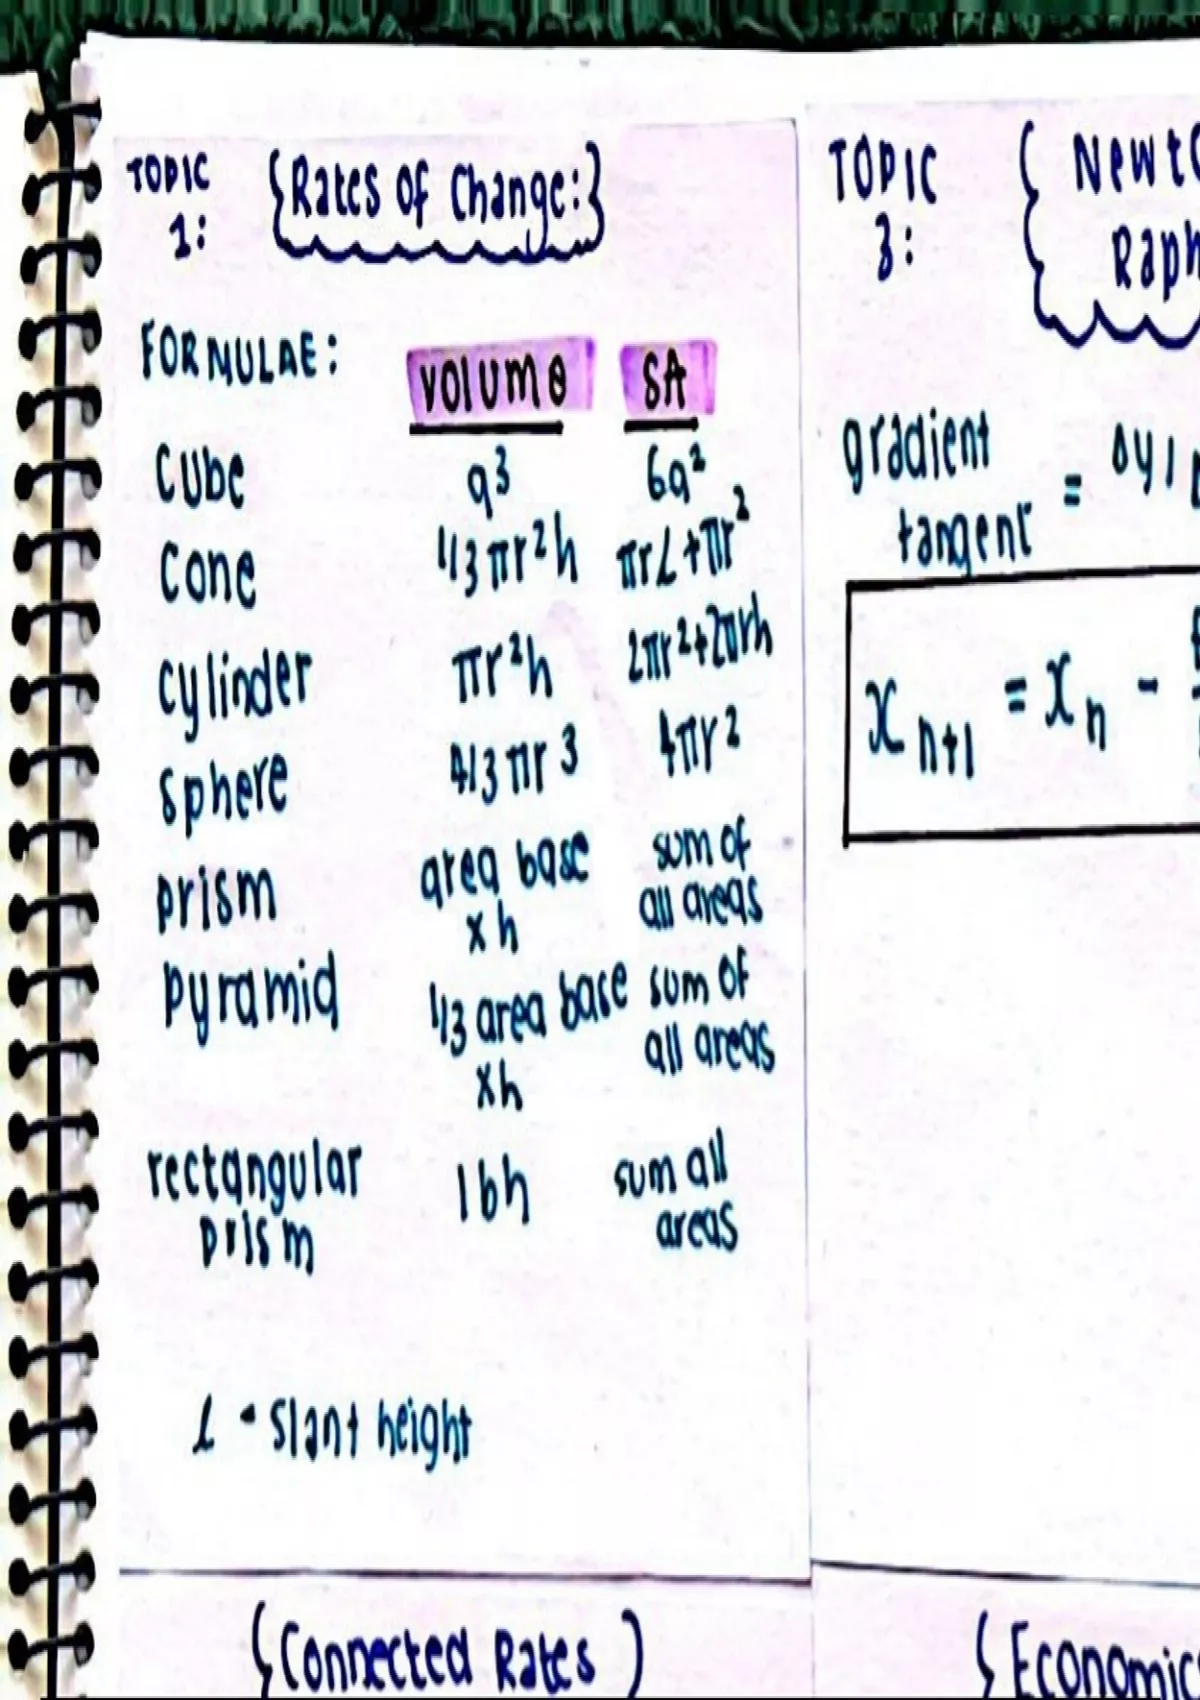 TOPIC
1:
Rates of Change:
FORMULAE:
VOLUME SA
Cube a³ 6a²
Cone 1/3 πr²h πrL+πr²
Cylinder πr²h 2πr²+2πrh
sphere 4/3 πr³ 4πr²
prism area base sum of
x h all areas
pyramid 1/3 area base sum of
xh all areas
rectangular lbh sum all
prism areas
L - Slant height
Connected Rates
TOPIC
3:
gradient
tangent =
x n+1 = x n -